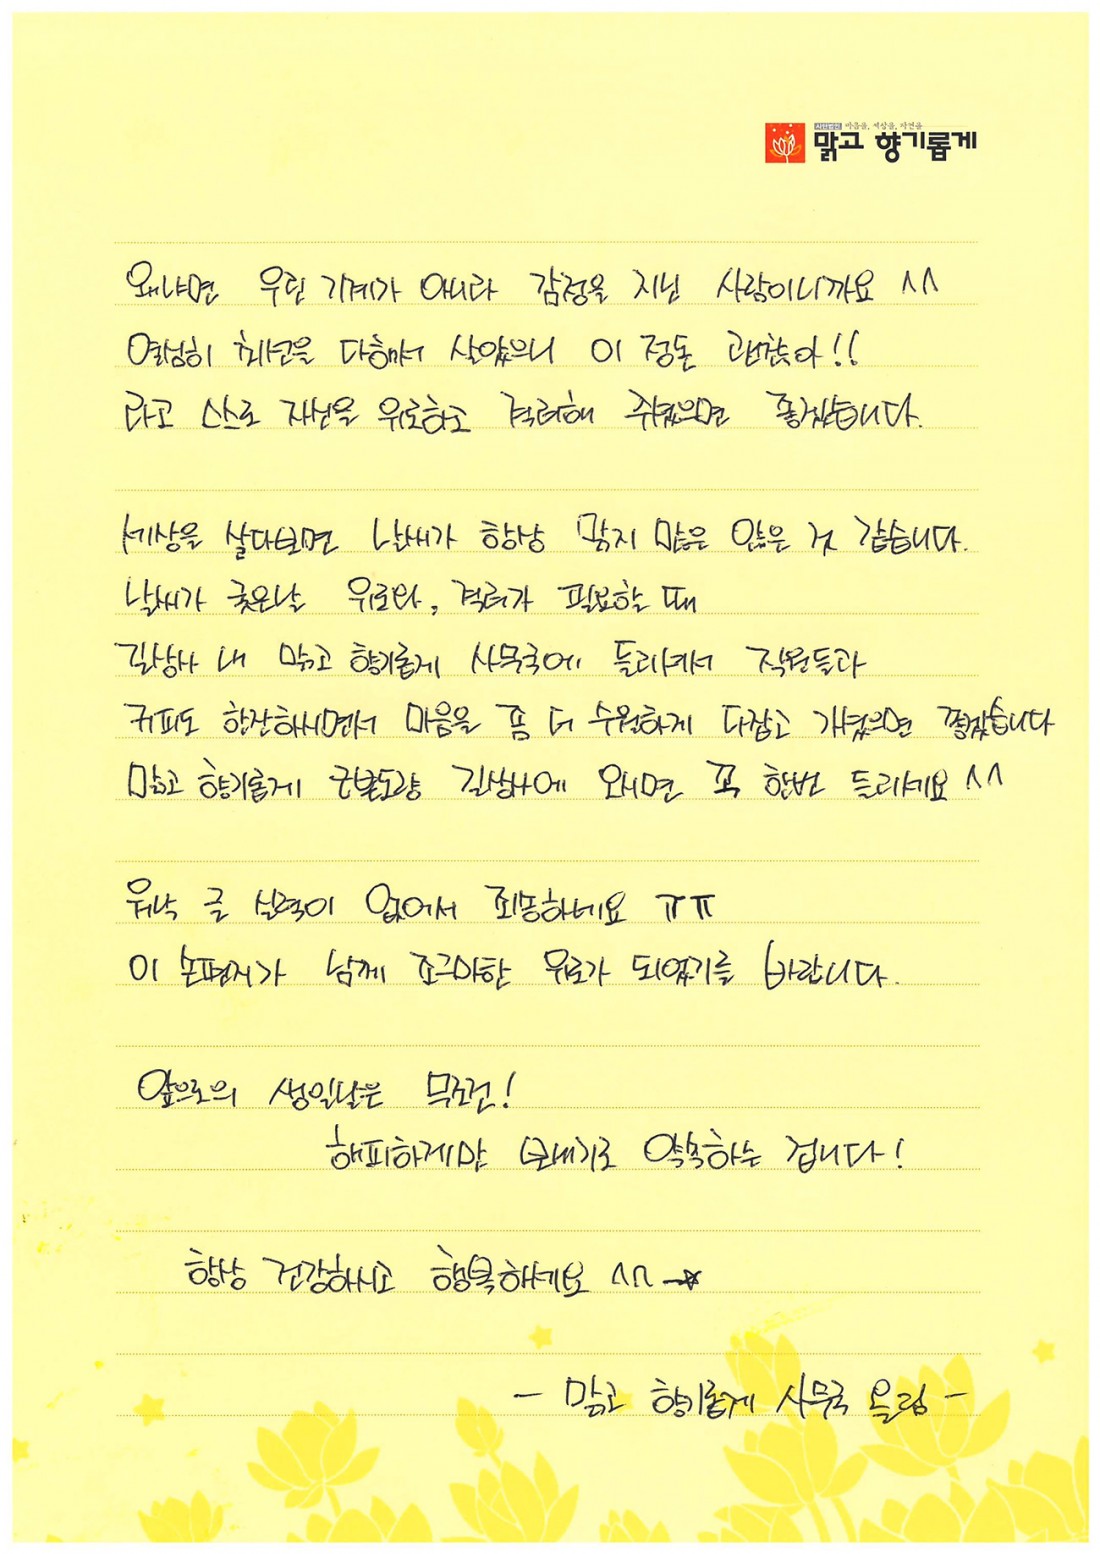 사단법인 마음을, 세상을, 자연을
맑고 향기롭게
왜냐면 우린 기계가 아니라 감정을 지닌 사람이니까요 ^^
열심히 최선을 다해서 살았으니 이 정돈 괜찮아!!
라고 스스로 자신을 위로하고 격려해 주셨으면 좋겠습니다.
세상을 살다보면 날씨가 항상 맑지 많은 않은 것 같습니다.
날씨가 궂은날 위로와, 격려가 필요할 때
길상사 내 맑고 향기롭게 사무국에 들리셔서 직원들과
커피도 한잔하시면서 마음을 좀 더 수월하게 다잡고 가셨으면 좋겠습니다
맑고 향기롭게 근본도량 길상사에 오시면 꼭 한번 들리세요 ^^
워낙 글 실력이 없어서 죄송하네요 ㅠㅠ
이 손편지가 님께 조그마한 위로가 되었기를 바랍니다.
앞으로의 생일날은 무조건!
해피하게만 보내기로 약속하는 겁니다!
항상 건강하시고 행복하세요 ^^
- 맑고 향기롭게 사무국 올림 -